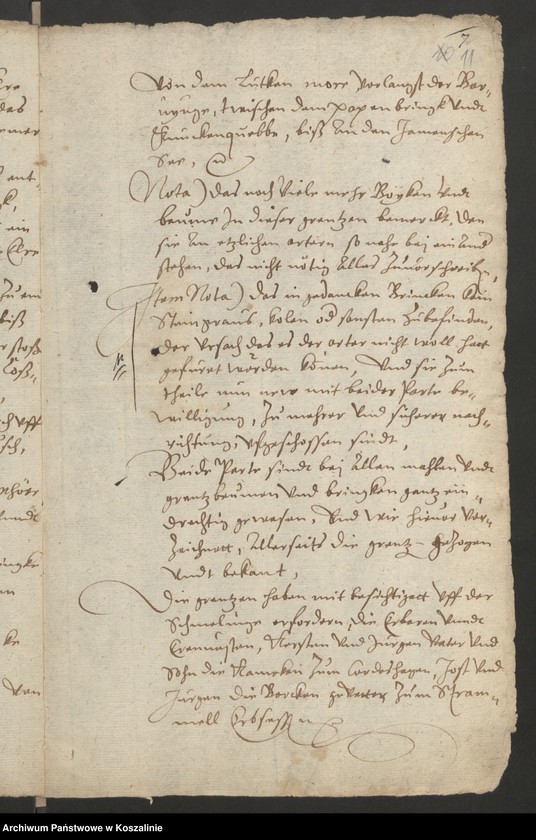 7
10 11
Von dem Lutken more vorlangst der Bor-
nynge, twischen dem papenbringk vndt
, biß an den Jamenschen
See,
Nota) das noch viele mehr Boyken vndt
beume In dieser grentzen bemerckt, den
sie an etzlichen ortern so nahe bei einand
stehen, das nicht nötig alles zuvorschreiben,
Item Nota) das in gedancken Brincken kein
Steingraus, kolen od sonsten zubefinden,
der vrsach das es der orter nicht woll hatt
gefüret worden können, Vnd sie zum
theile nun new mit beider Parte be-
willigung, zu mehrer vnd sicherer nach-
richtung, vfgeschossen sindt,
Beide Parte sindt bei allen mahlen vndt
grentzbeumen vnd brincken gantz ein-
drechtig gewesen, Vnd wie hieuor vor-
zeichnett, allerseits die grentz gezogen
vndt bekant,
Die grentzen haben mit besichtigett vff der
Schmelinge erfordern, die Erbaren vnndt
Erenuesten, Kersten vnd Jürgen Vater vnd
Sohn die Kameken zum Cordeshagen, Jost vnd
Jürgen die Borcken geVetter zum
Erbsessen
Archiwum Państwowe w Koszalinie